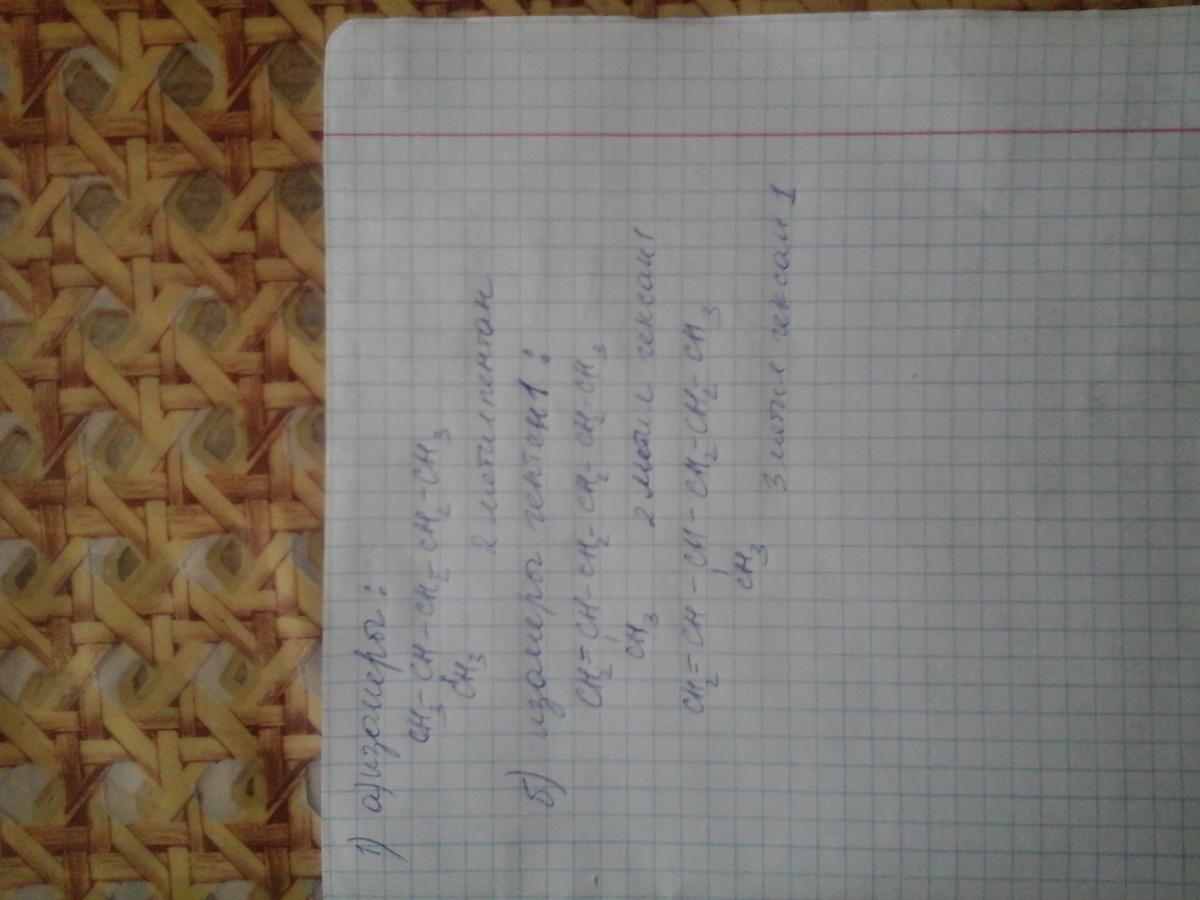 1) а) изомеры:
CH₃-CH-CH₂-CH₂-CH₃
CH₃
2 метилпентан
б) изомеры гептен1:
CH₂=CH-CH₂-CH₂-CH₂-CH₃
CH₃
2 метил гексан1
CH₂=CH-CH-CH₂-CH₂-CH₃
CH₃
3 метил гексан 1